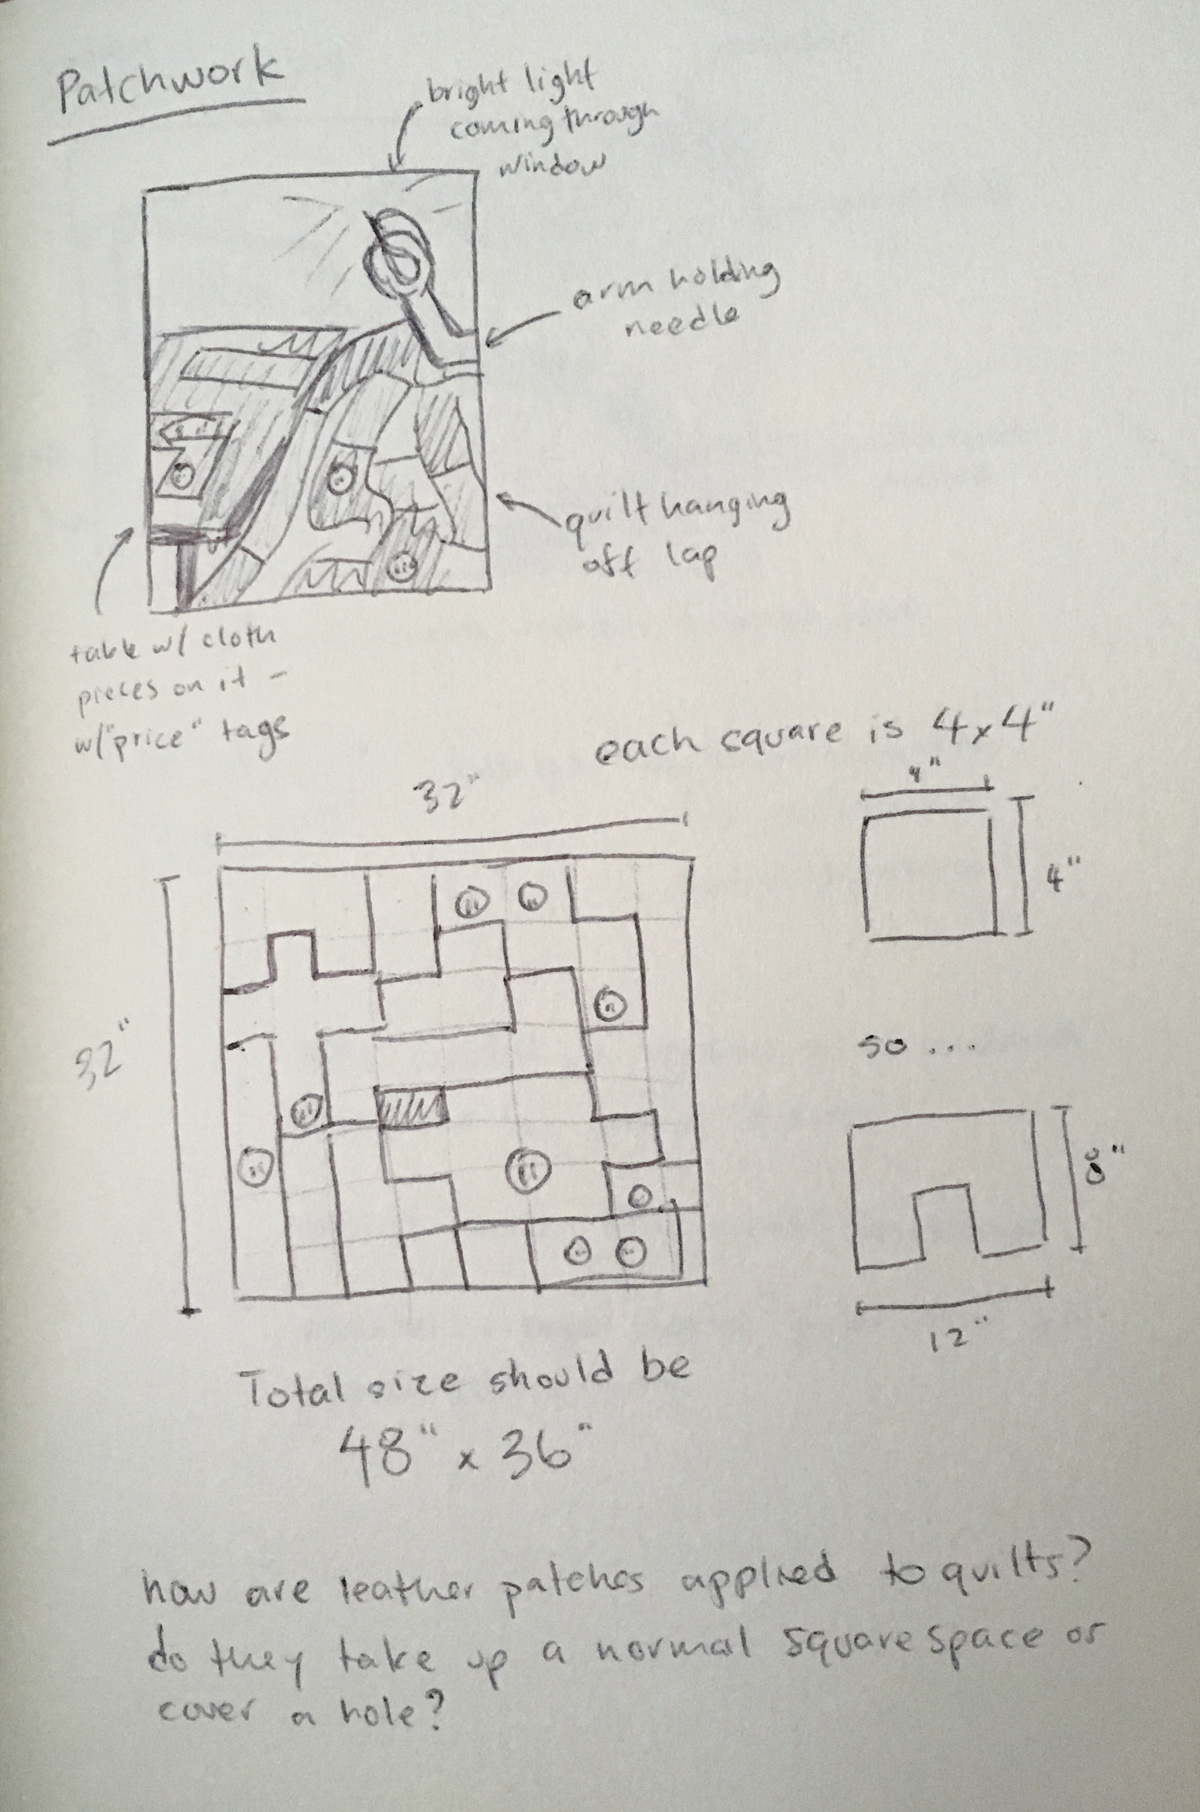 Patchwork
bright light
coming through
window
arm holding
needle
quilt hanging
off lap
table w/ cloth
pieces on it -
w/"price" tags
each square is 4x4"
4"
4"
32"
32"
so...
8"
12"
Total size should be
48" x 36"
how are leather patches applied to quilts?
do they take up a normal square space or
cover a hole?